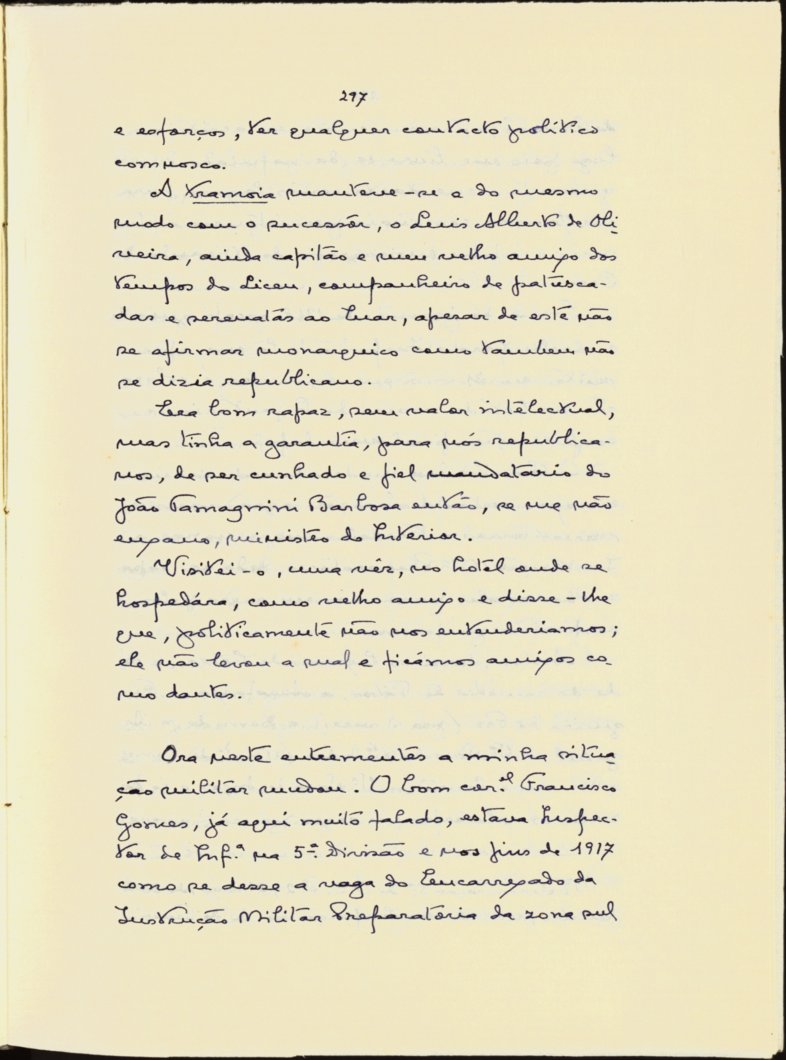 297
e esforços, ter qualquer contacto politico
comnosco.
A tramoia manteve-se a do mesmo
modo com o sucessôr, o Luis Alberto de Oli-
veira, ainda capitão e meu velho amigo dos
tempos do Liceu, companheiro de patusca-
das e serenatas ao luar, apesar de este não
se afirmar monarquico como tambem não
se dizia republicano.
Era bom rapaz, sem valor intelectual,
mas tinha a garantia, para nós republica-
nos, de ser cunhado e fiel mandatario do
João Tamagnini Barbosa então, se me não
engano, ministro do Interior.
Visitei-o, uma vêz, no hotel onde se
hospedára, como velho amigo e disse-lhe
que, politicamente não nos entenderiamos;
ele não levou a mal e ficámos amigos co-
mo dantes.
Ora neste entrementes a minha situa-
ção militar mudou. O bom cor.el Francisco
Gomes, já aqui muito falado, estava Inspec-
tor de Inf.ª na 5.ª Divisão e nos fins de 1917
como se desse a vaga do Encarregado da
Instrução Militar Preparatoria da zona sul